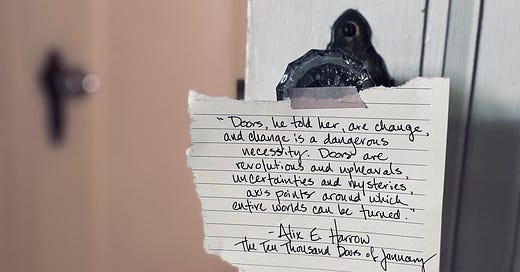 "Doors, he told her, are change,
and change is a dangerous
necessity. Doors are
revolutions and upheavals,
uncertainties and mysteries,
axis points around which
entire worlds can be turned."
- Alix E. Harrow
The Ten Thousand Doors of January